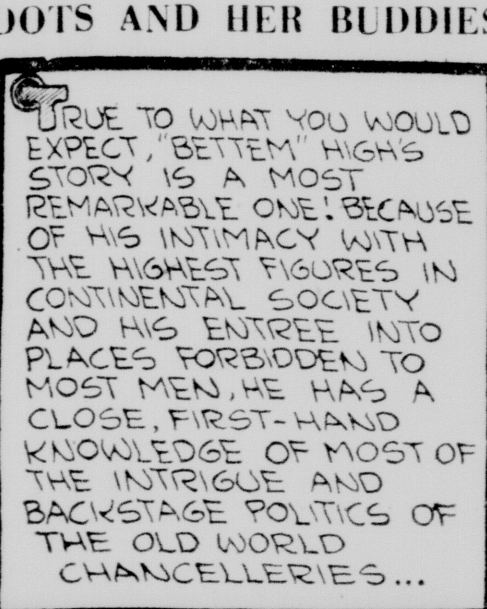 OOTS AND HER BUDDIES
TRUE TO WHAT YOU WOULD
EXPECT, "BETTEM" HIGH'S
STORY IS A MOST
REMARKABLE ONE! BECAUSE
OF HIS INTIMACY WITH
THE HIGHEST FIGURES IN
CONTINENTAL SOCIETY
AND HIS ENTREE INTO
PLACES FORBIDDEN TO
MOST MEN, HE HAS A
CLOSE, FIRST-HAND
KNOWLEDGE OF MOST OF
THE INTRIGUE AND
BACKSTAGE POLITICS OF
THE OLD WORLD
CHANCELLERIES...